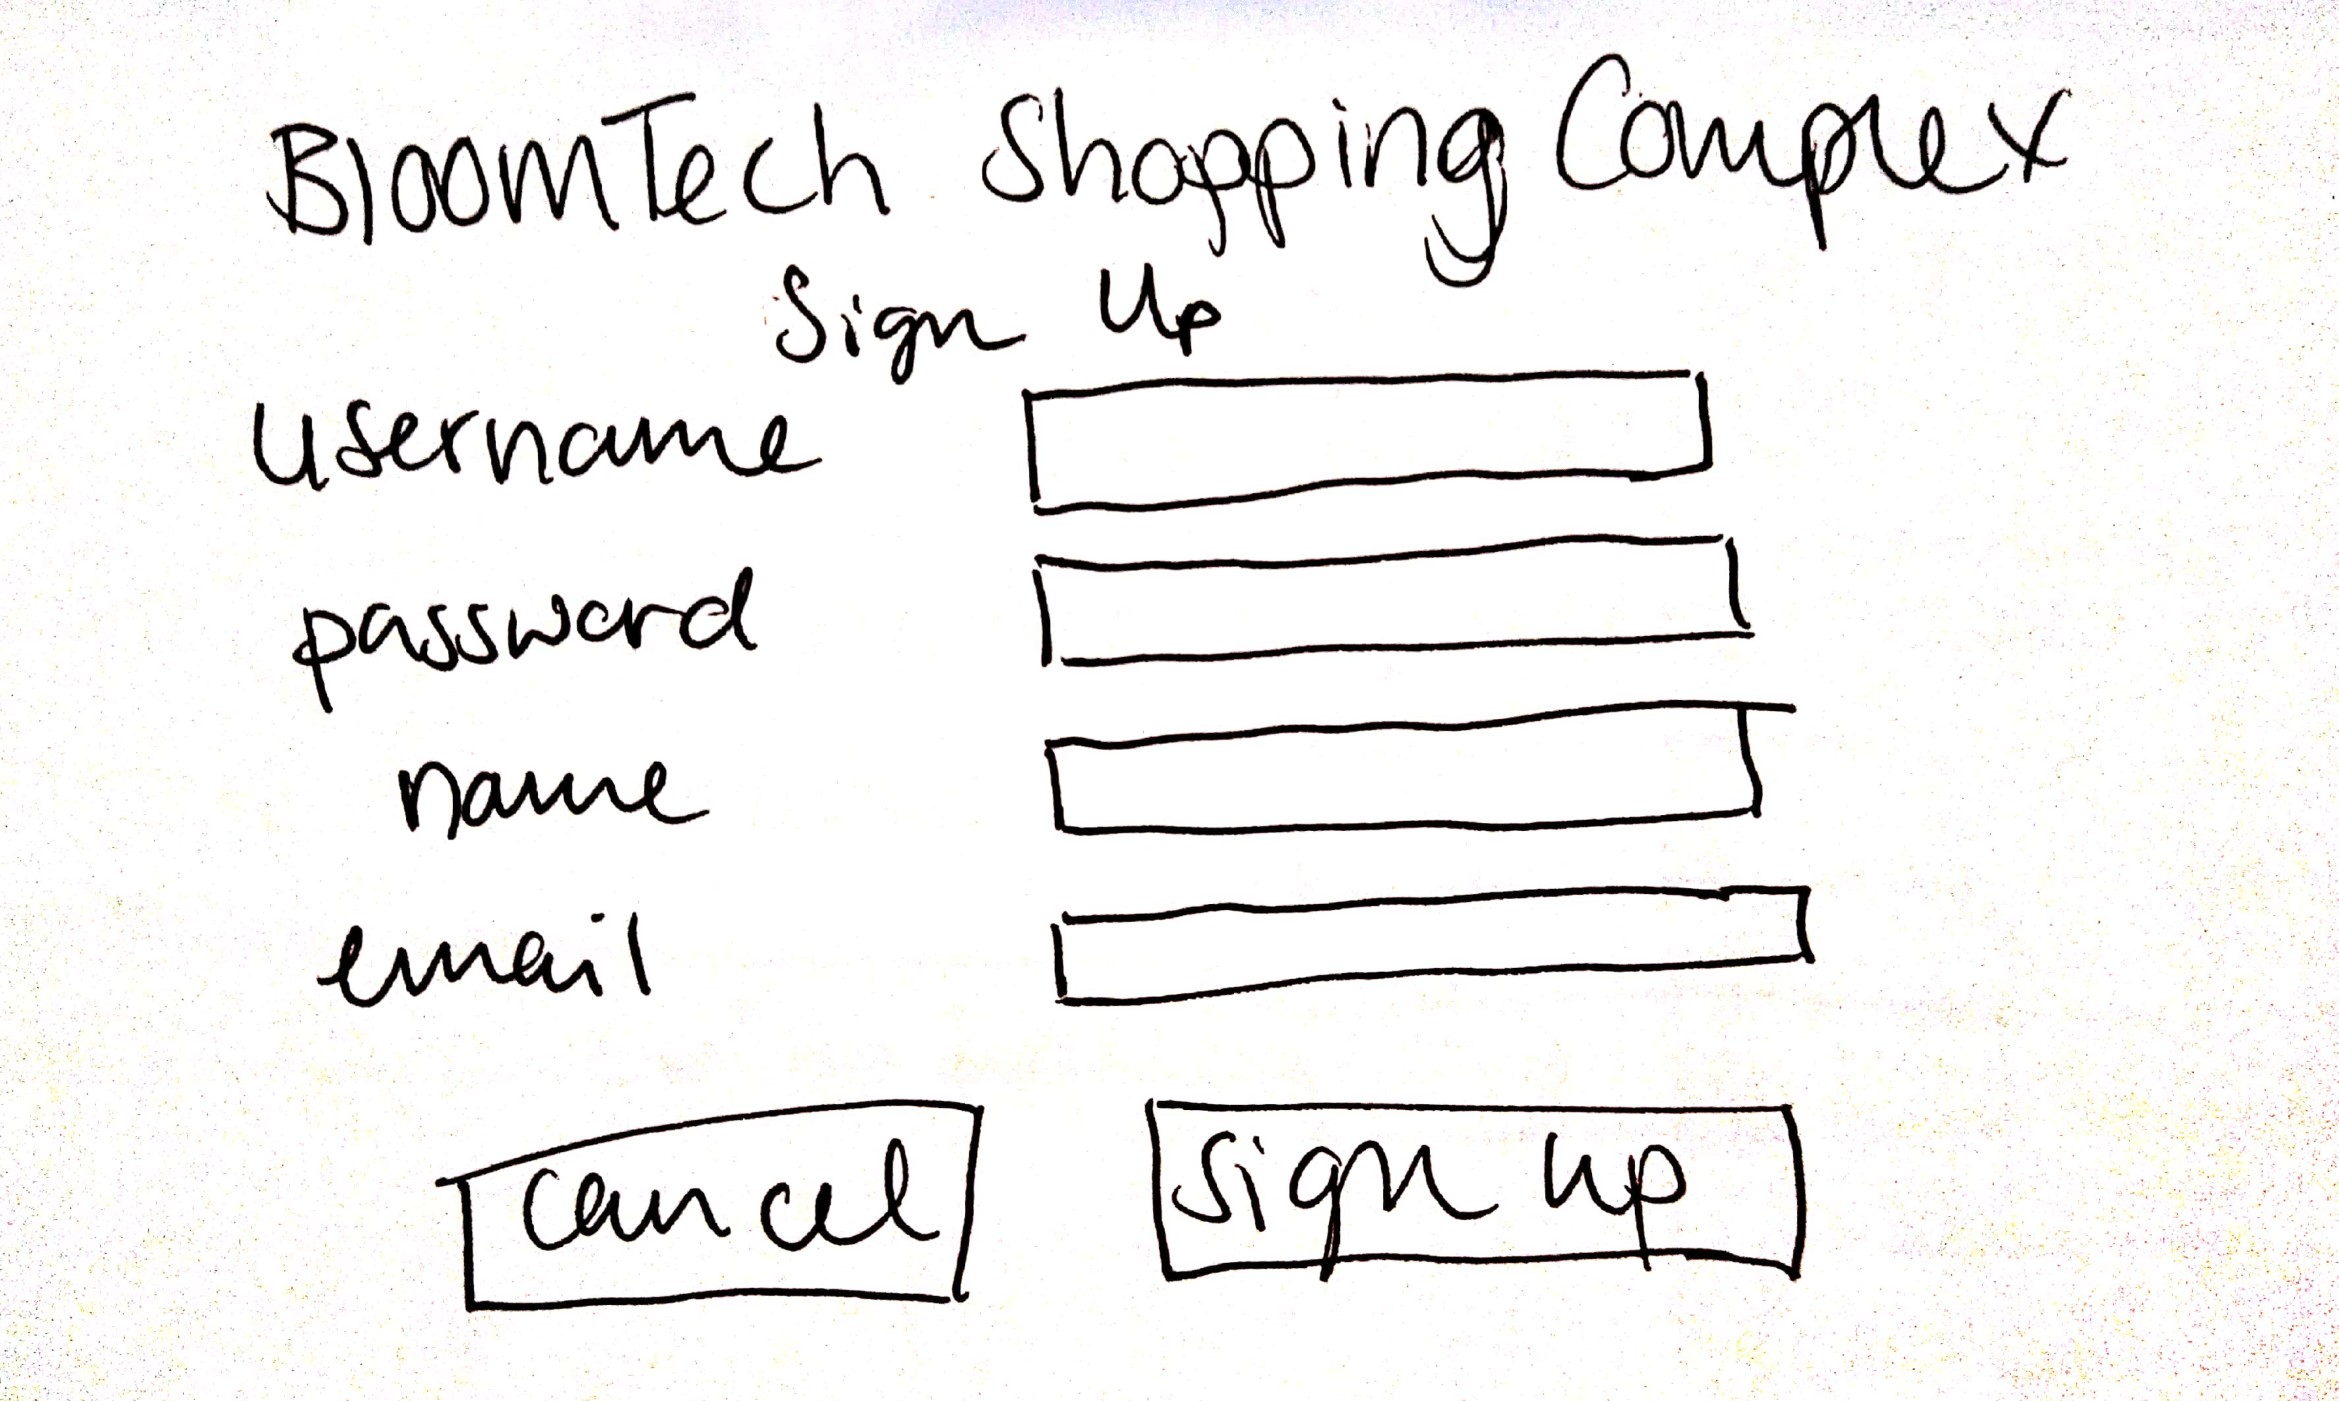 BloomTech Shopping Complex
Sign Up
username
password
name
email
cancel sign up